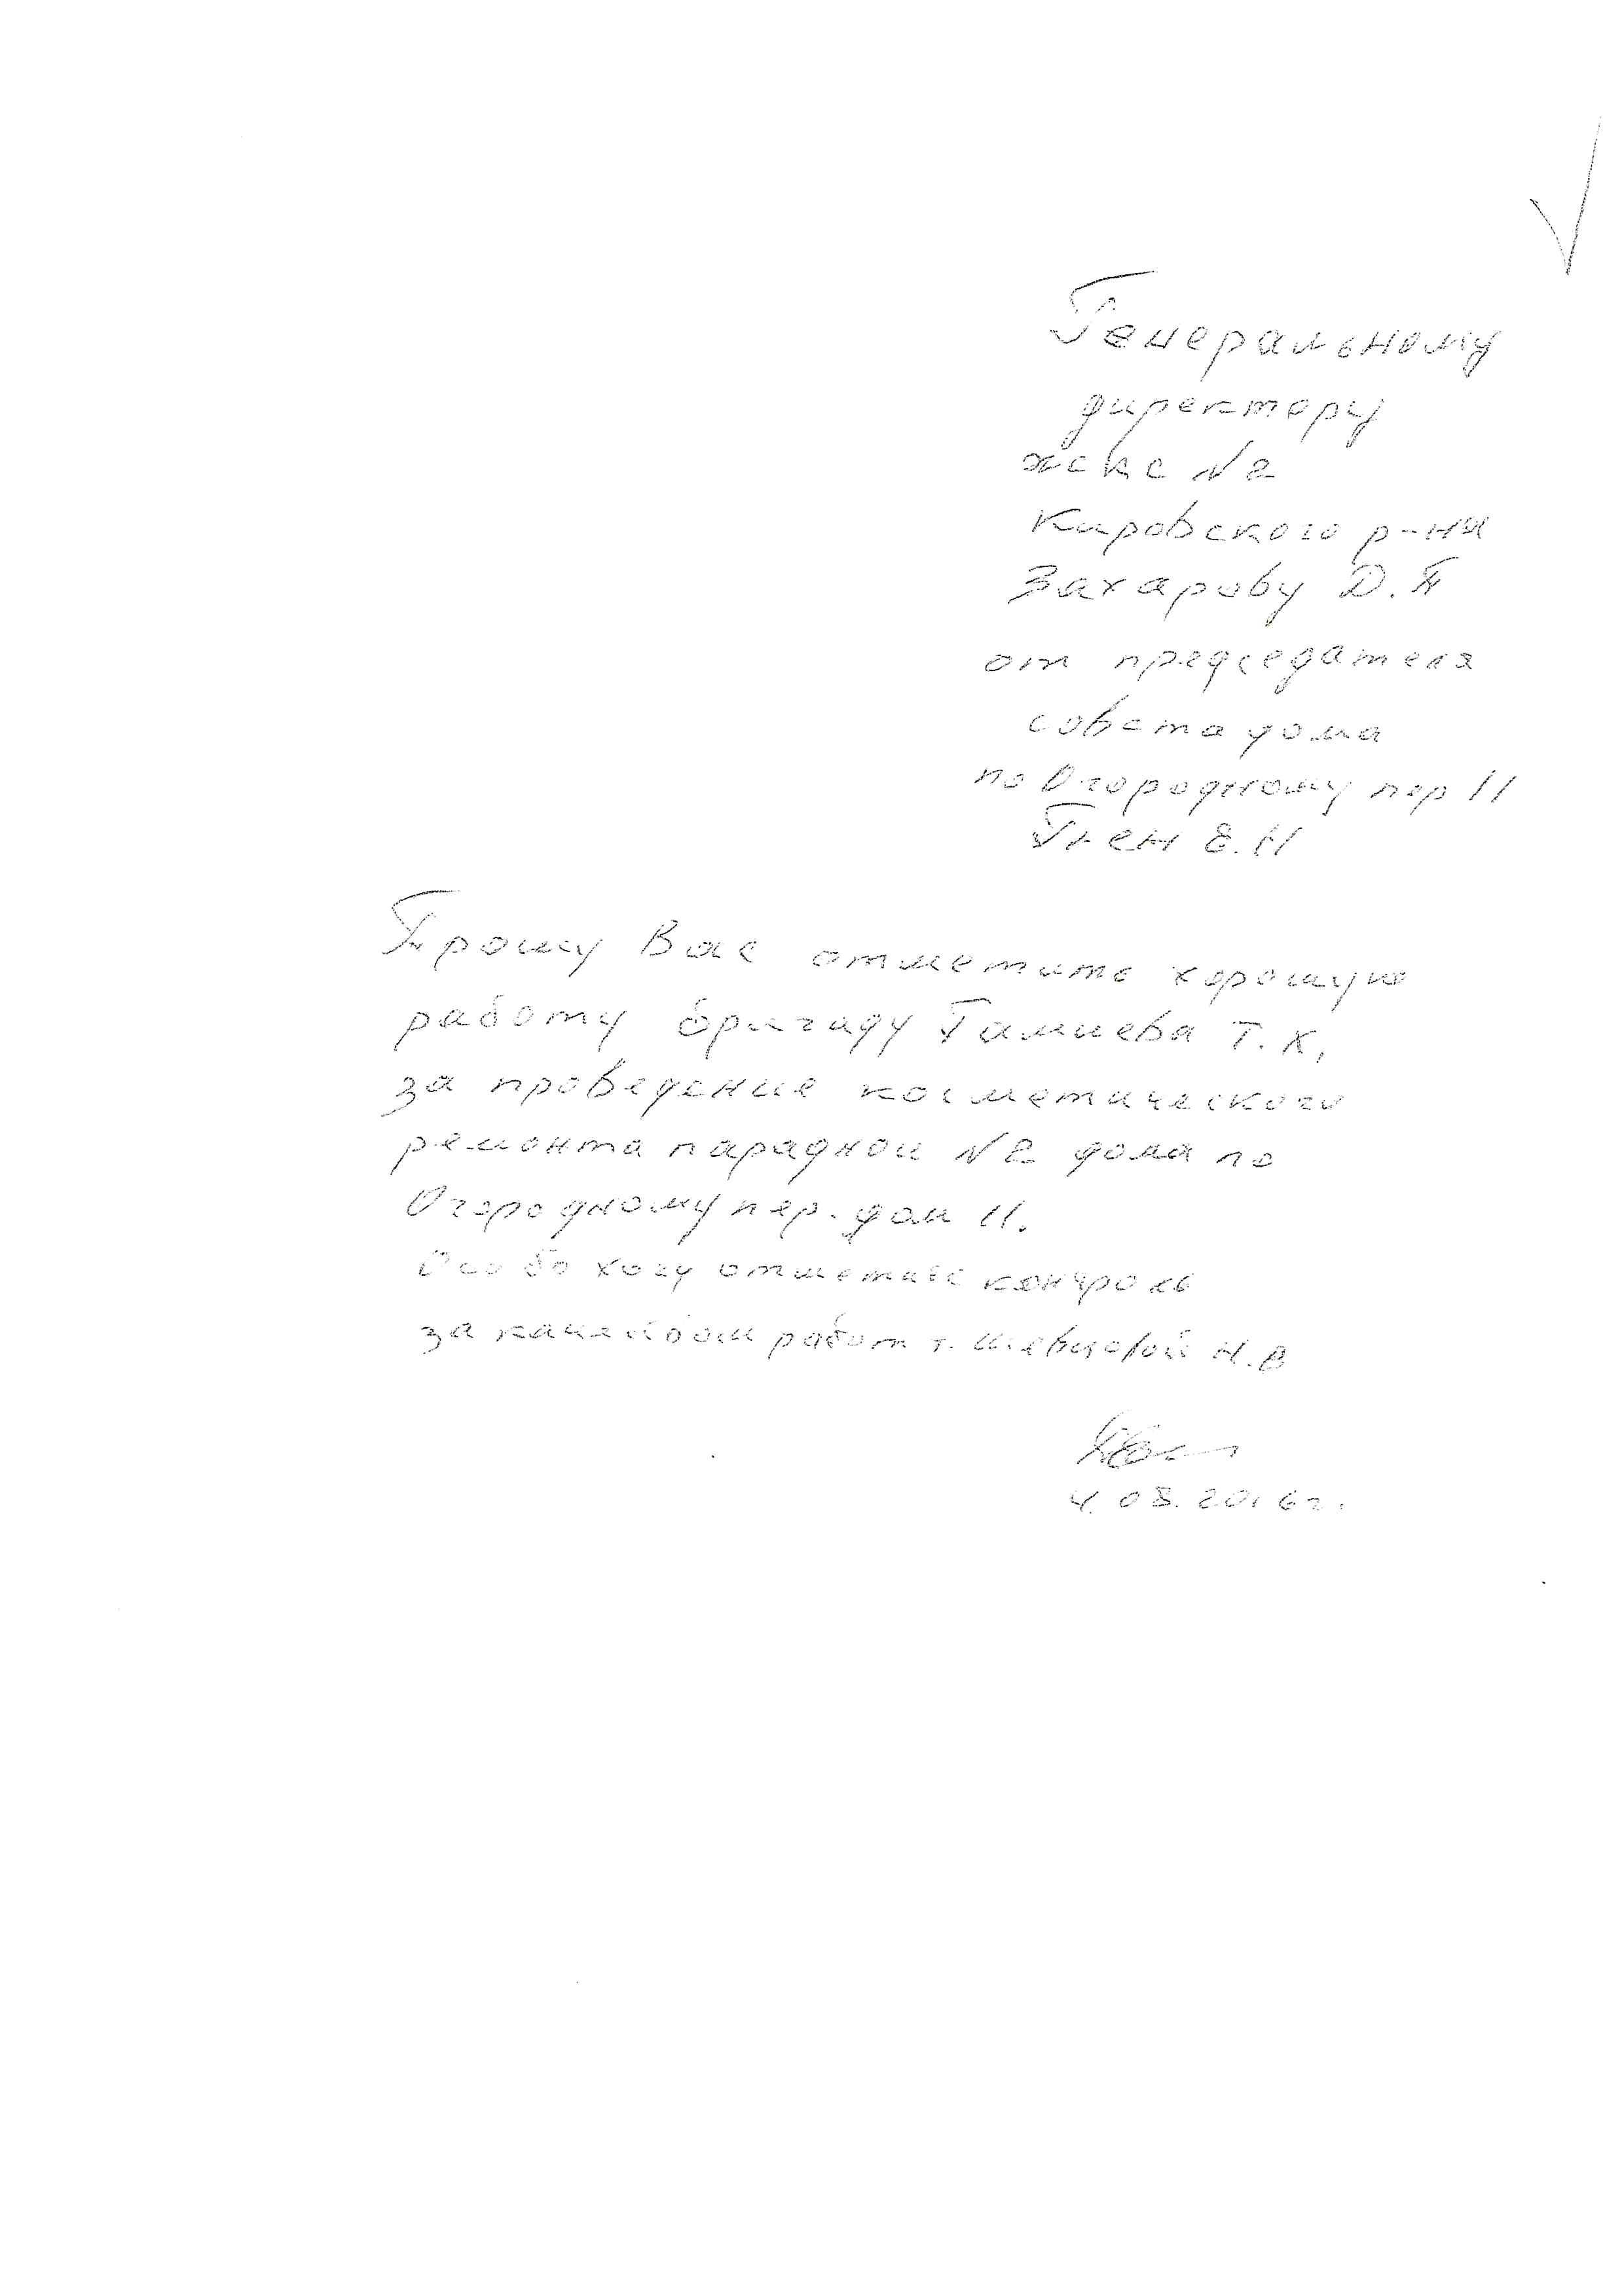 Генеральному
директору
жскс N2
Кировского р-на
Захарову Д.П
от председателя
совета дома
по Огородному пер 11
Е.Н
Прошу Вас отметить хорошую
работу бригаду Галиева Т.К,
за проведение косметического
ремонта парадной N2 дома по
Огородному пер. дом 11.
Особо хочу отметить контроль
за качеством работ т. Шевцовой Н.В
4.08.2016г.